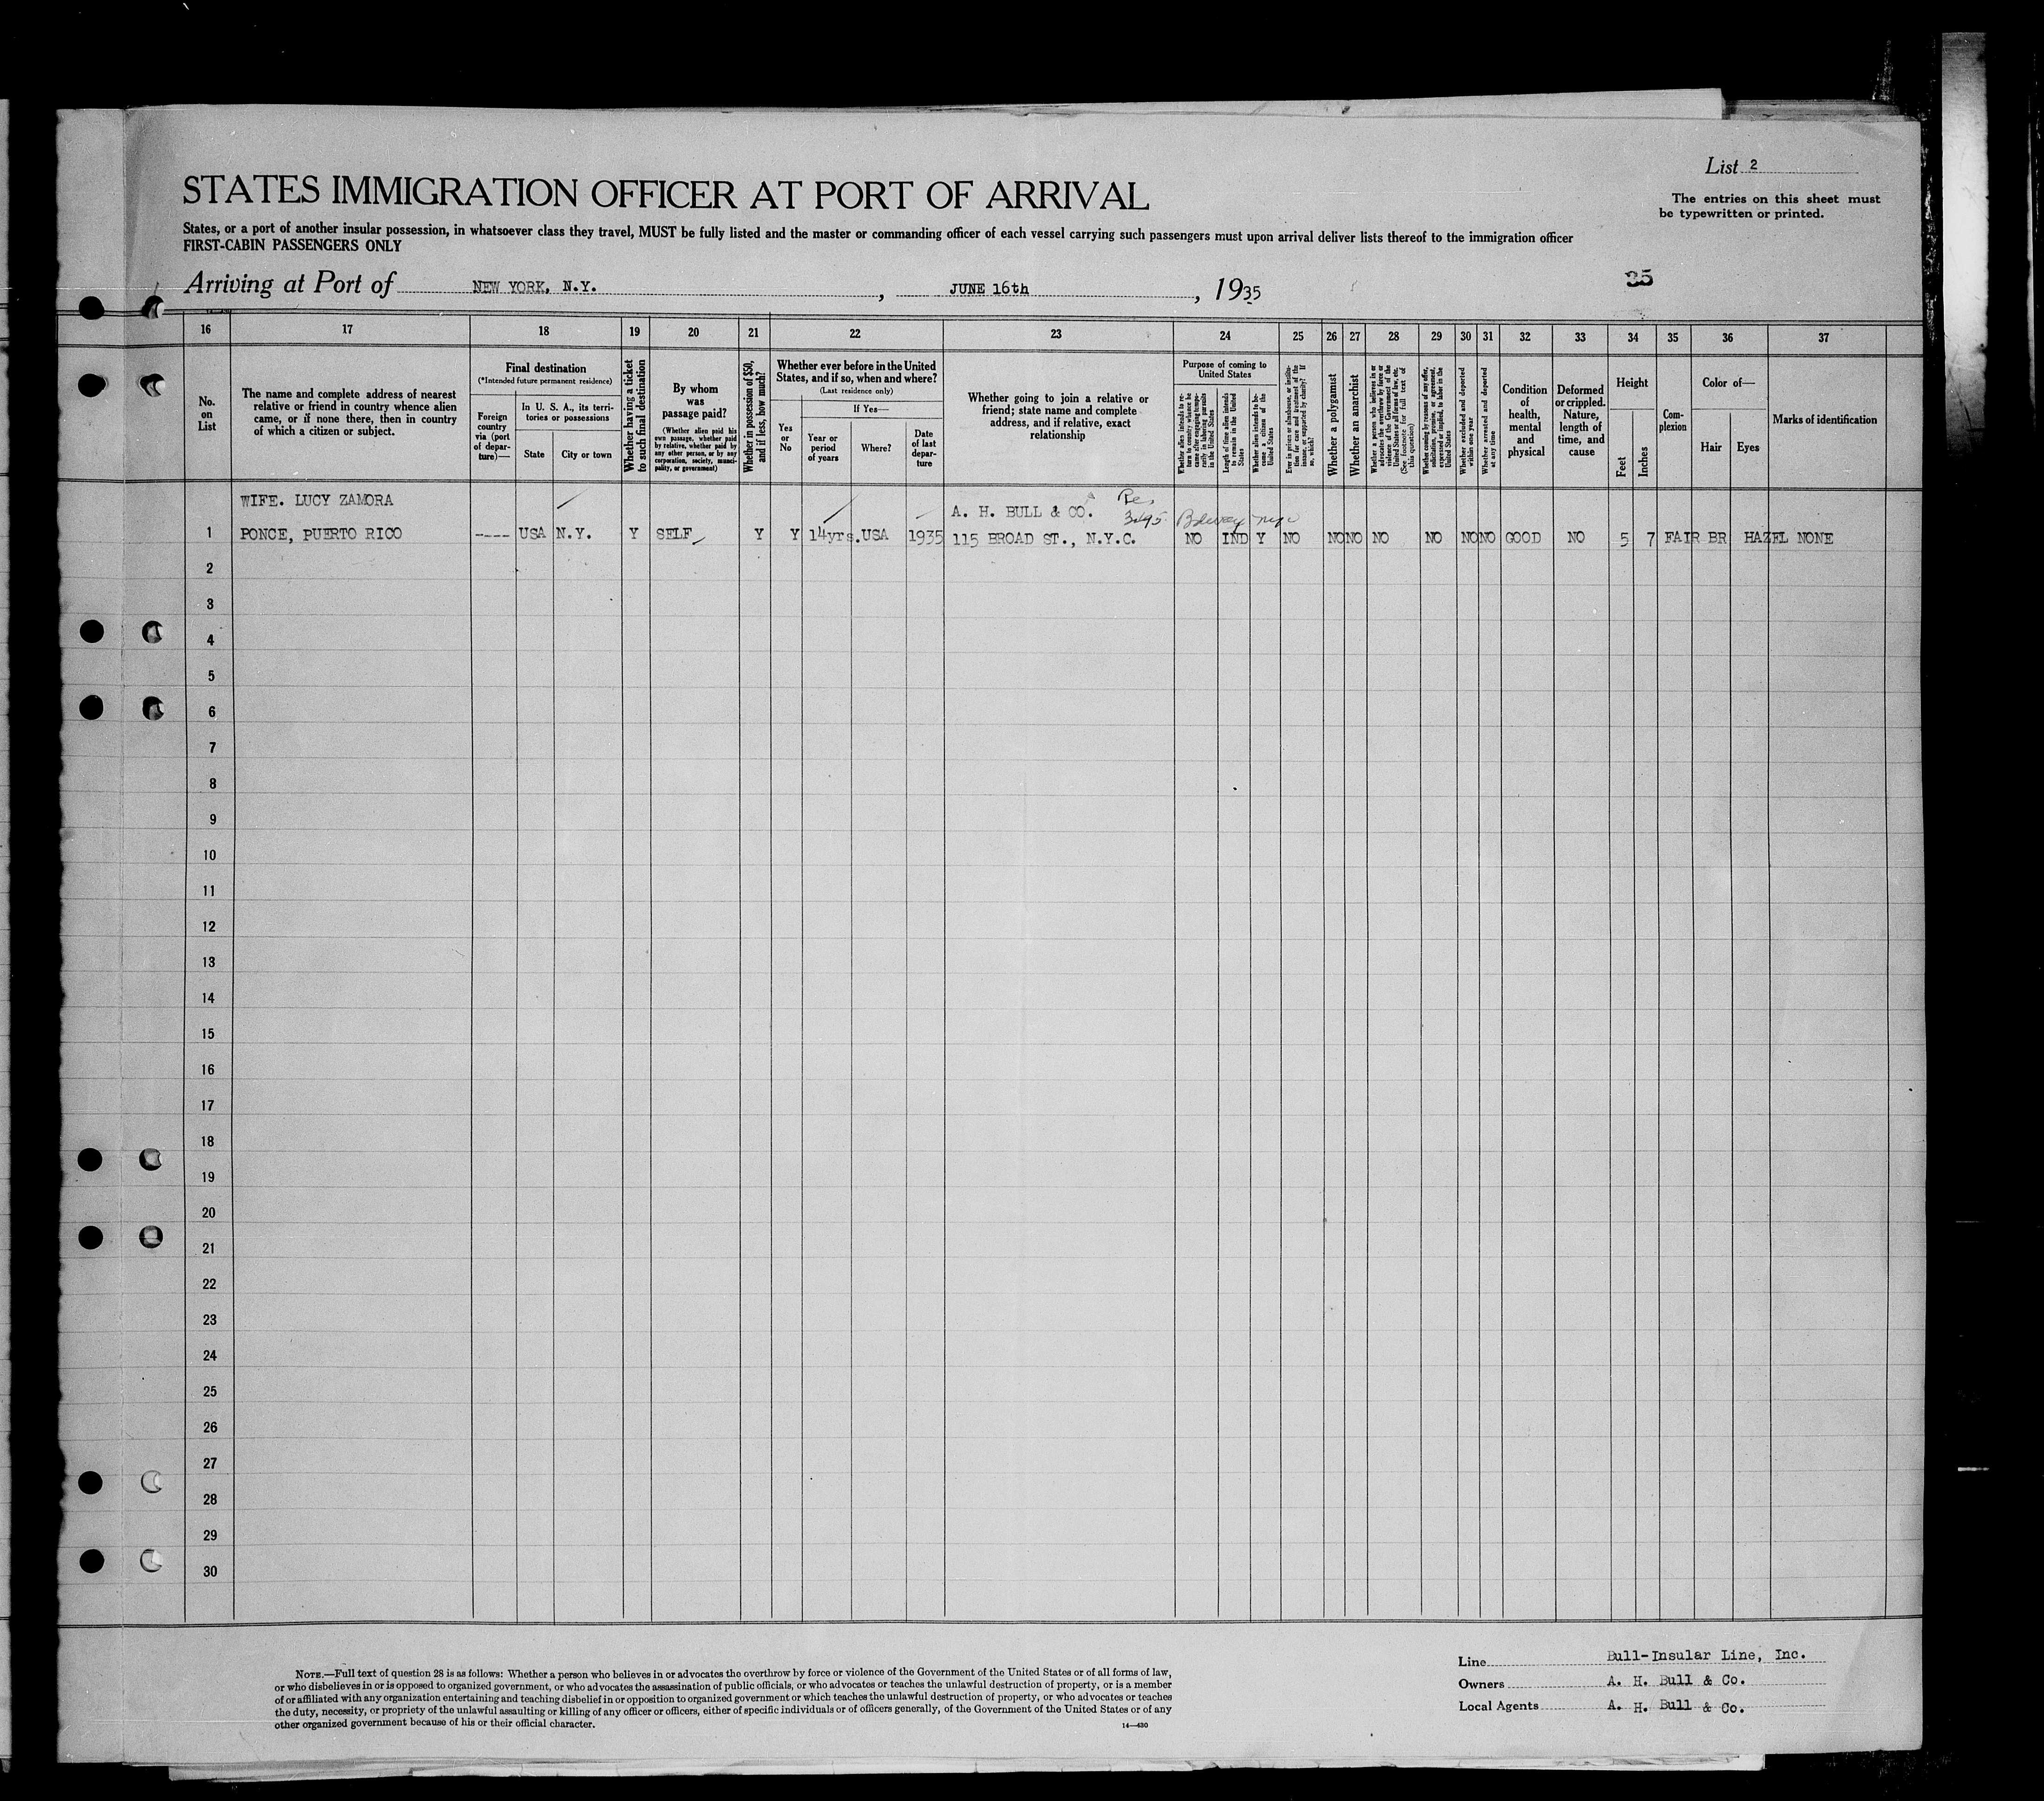 List 2
STATES IMMIGRATION OFFICER AT PORT OF ARRIVAL
The entries on this sheet must
be typewritten or printed.
States, or a port of another insular possession, in whatsoever class they travel, MUST be fully listed and the master or commanding officer of each vessel carrying such passengers must upon arrival deliver lists thereof to the immigration officer
FIRST-CABIN PASSENGERS ONLY
Arriving at Port of NEW YORK, N.Y. , JUNE 16th , 1935
35
16 17 18 19 20 21 22 23 24 25 26 27 28 29 30 31 32 33 34 35 36 37
No. on List
The name and complete address of nearest relative or friend in country whence alien came, or if none there, then in country of which a citizen or subject.
Final destination
(*Intended future permanent residence)
Foreign country via (port of departure)—
In U. S. A., its territories or possessions
State
City or town
Whether having a ticket to such final destination
By whom was passage paid?
(Whether alien paid his own passage, whether paid by relative, whether paid by any other person, or by any corporation, society, municipality, or government)
Whether in possession of $50, and if less, how much?
Whether ever before in the United States, and if so, when and where?
(Last residence only)
Yes or No
If Yes—
Year or period of years
Where?
Date of last departure
Whether going to join a relative or friend; state name and complete address, and if relative, exact relationship
Purpose of coming to United States
Whether alien intends to return to country whence he came after engaging temporarily in laboring pursuits in the United States
Length of time alien intends to remain in the United States
Whether alien intends to become a citizen of the United States
Ever in prison or almshouse, or institution for care and treatment of the insane, or supported by charity? If so, which?
Whether a polygamist
Whether an anarchist
Whether a person who believes in or advocates the overthrow by force or violence of the Government of the United States or all forms of law, etc. (See footnote for full text of this question)
Whether coming by reasons of any offer, solicitation, promise, or agreement, expressed or implied, to labor in the United States
Whether excluded and deported within one year
Whether arrested and deported at any time
Condition of health, mental and physical
Deformed or crippled. Nature, length of time, and cause
Height
Feet
Inches
Complexion
Color of—
Hair
Eyes
Marks of identification
WIFE. LUCY ZAMORA
A. H. BULL & CO.
1 PONCE, PUERTO RICO ---- USA N.Y. Y SELF Y Y 14yrs. USA 1935 115 BROAD ST., N.Y.C. NO IND Y NO NO NO NO NO NO NO GOOD NO 5 7 FAIR BR HAZEL NONE
2
3
4
5
6
7
8
9
10
11
12
13
14
15
16
17
18
19
20
21
22
23
24
25
26
27
28
29
30
NOTE.—Full text of question 28 is as follows: Whether a person who believes in or advocates the overthrow by force or violence of the Government of the United States or of all forms of law,
or who disbelieves in or is opposed to organized government, or who advocates the assassination of public officials, or who advocates or teaches the unlawful destruction of property, or is a member
of or affiliated with any organization entertaining and teaching disbelief in or opposition to organized government or which teaches the unlawful destruction of property, or who advocates or teaches
the duty, necessity, or propriety of the unlawful assaulting or killing of any officer or officers, either of specific individuals or of officers generally, of the Government of the United States or of any
other organized government because of his or their official character.
14—430
Line Bull-Insular Line, Inc.
Owners A. H. Bull & Co.
Local Agents A. H. Bull & Co.